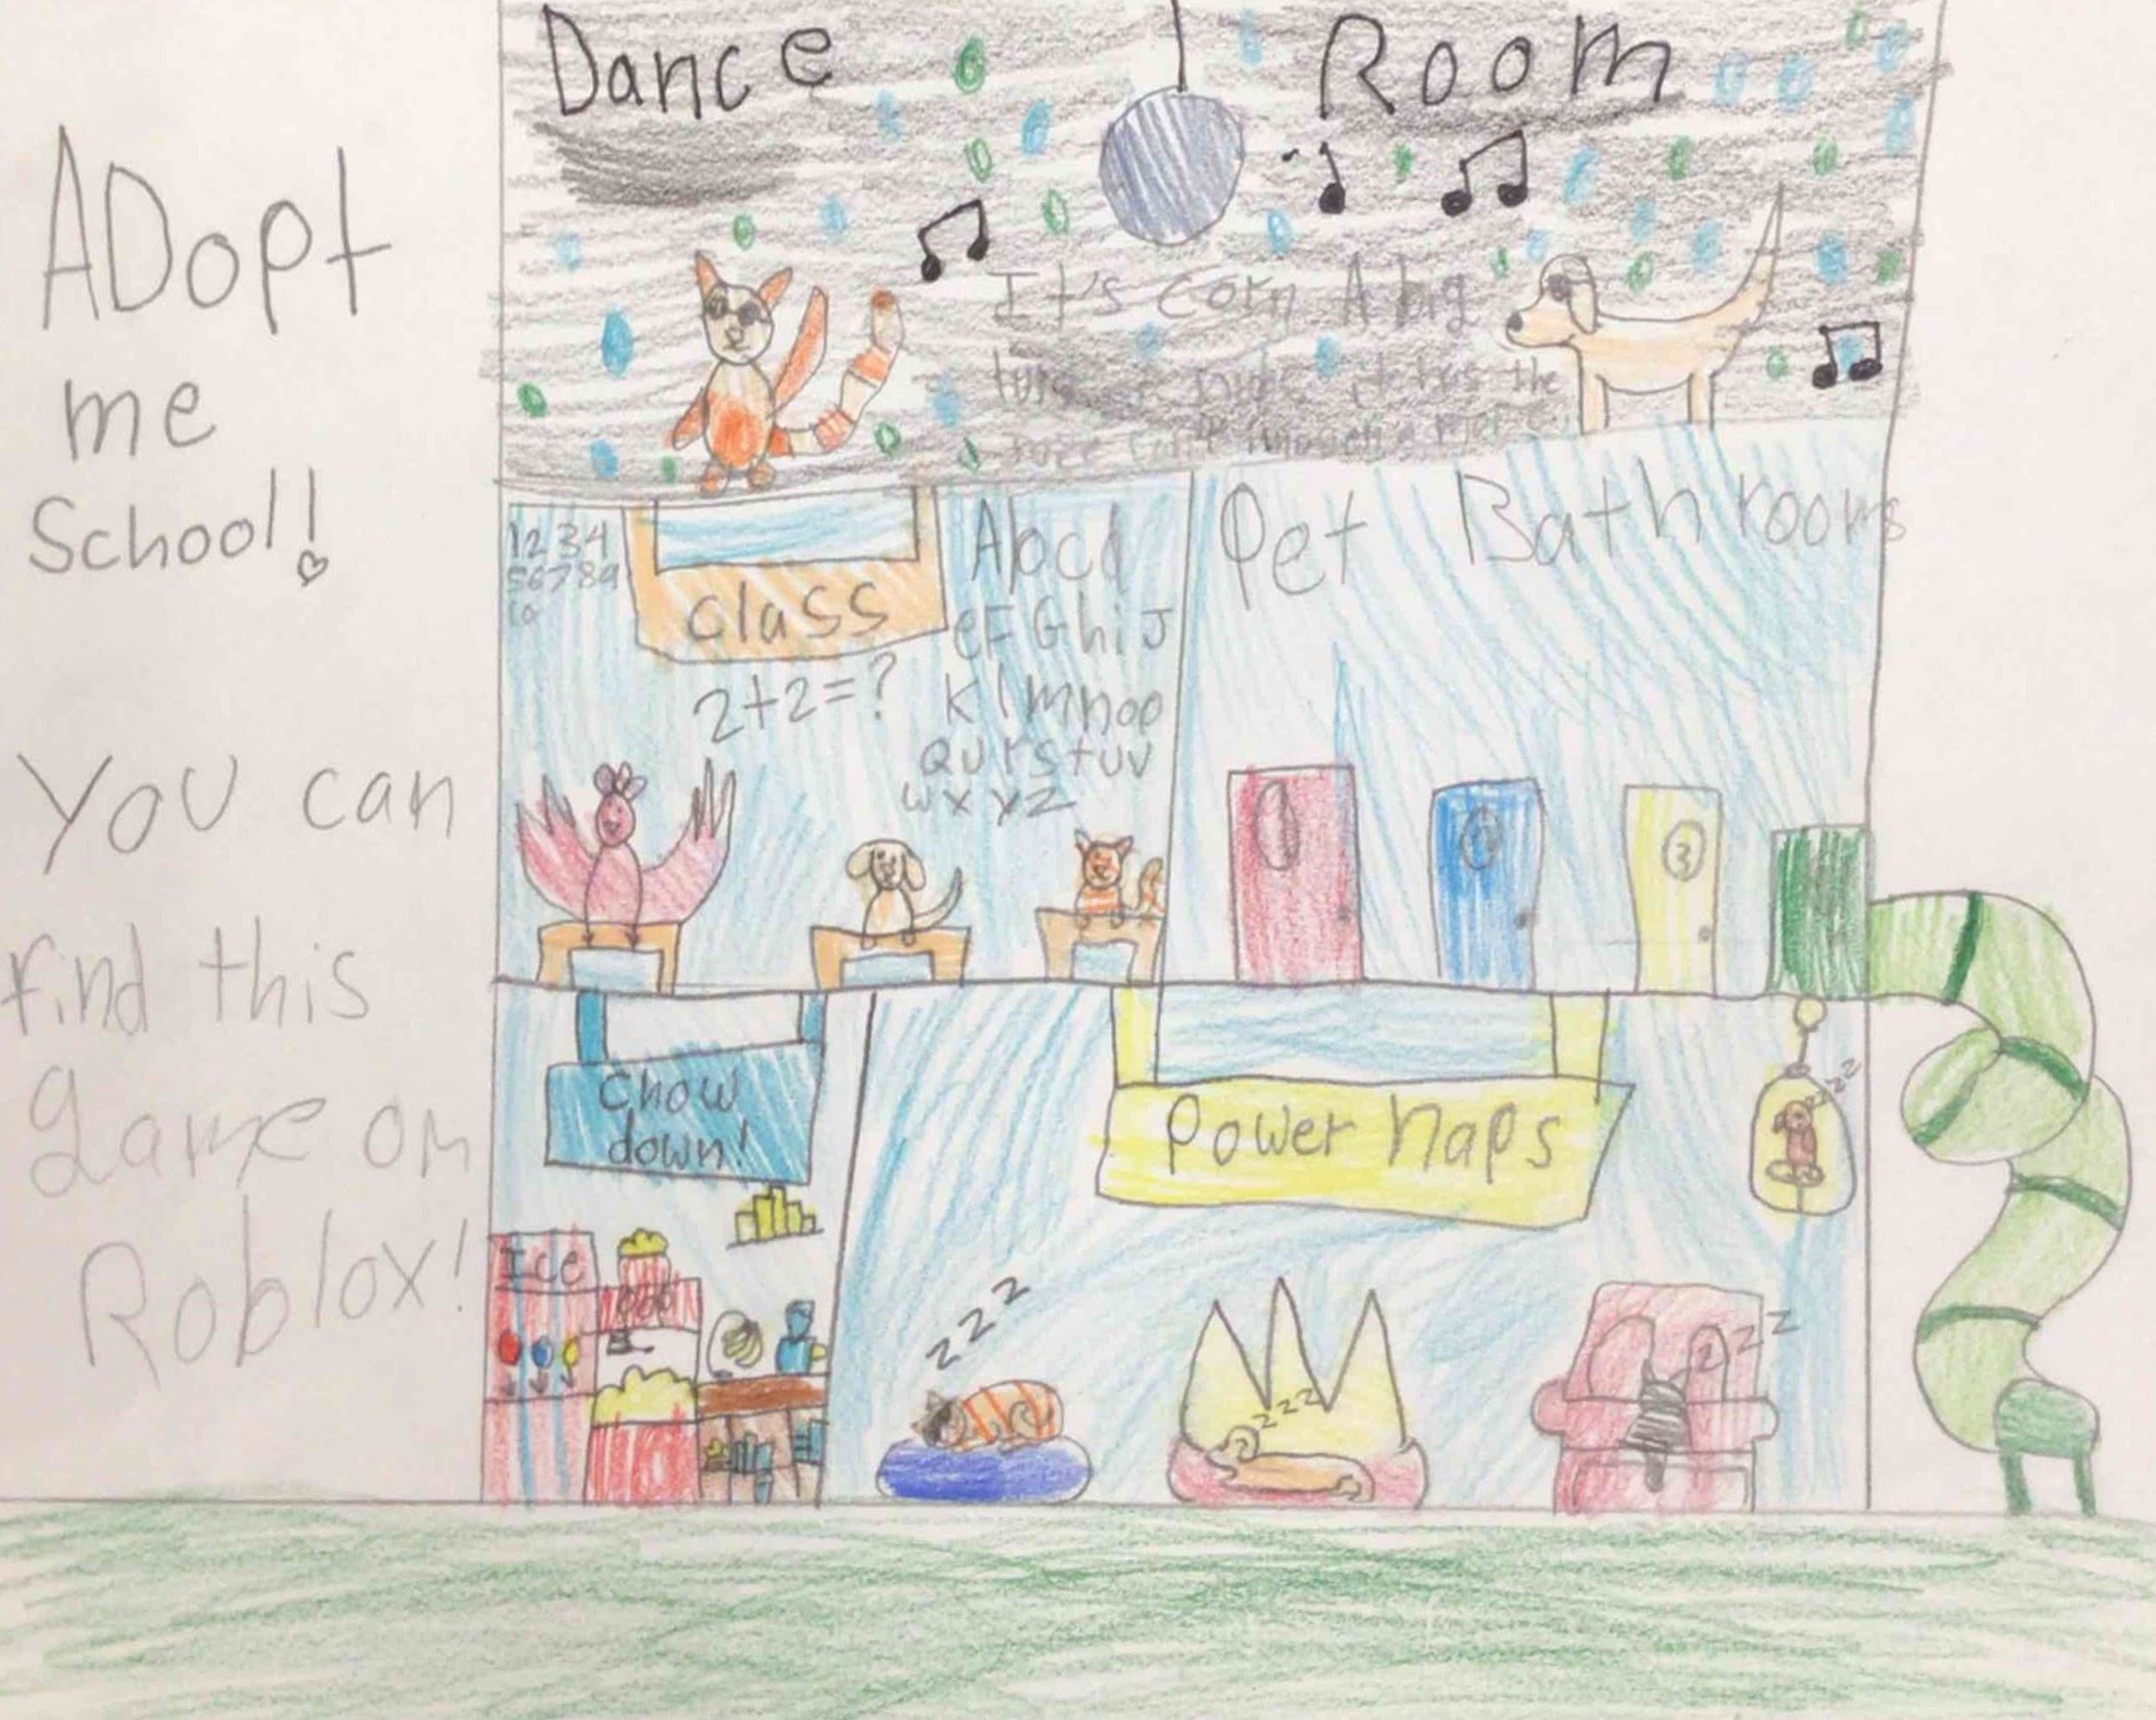 ADopt
me
School!
You can
find this
game on
Roblox!
Dance Room
It's corn A big
it has the
1234
56789
10
class
2+2=?
Abcd
eFGhiJ
Klmnop
Qurstuv
wxyz
Pet Bathrooms
1
2
3
Chow
down!
Power Naps
zzz
Ice
zzz
zzz
zzz